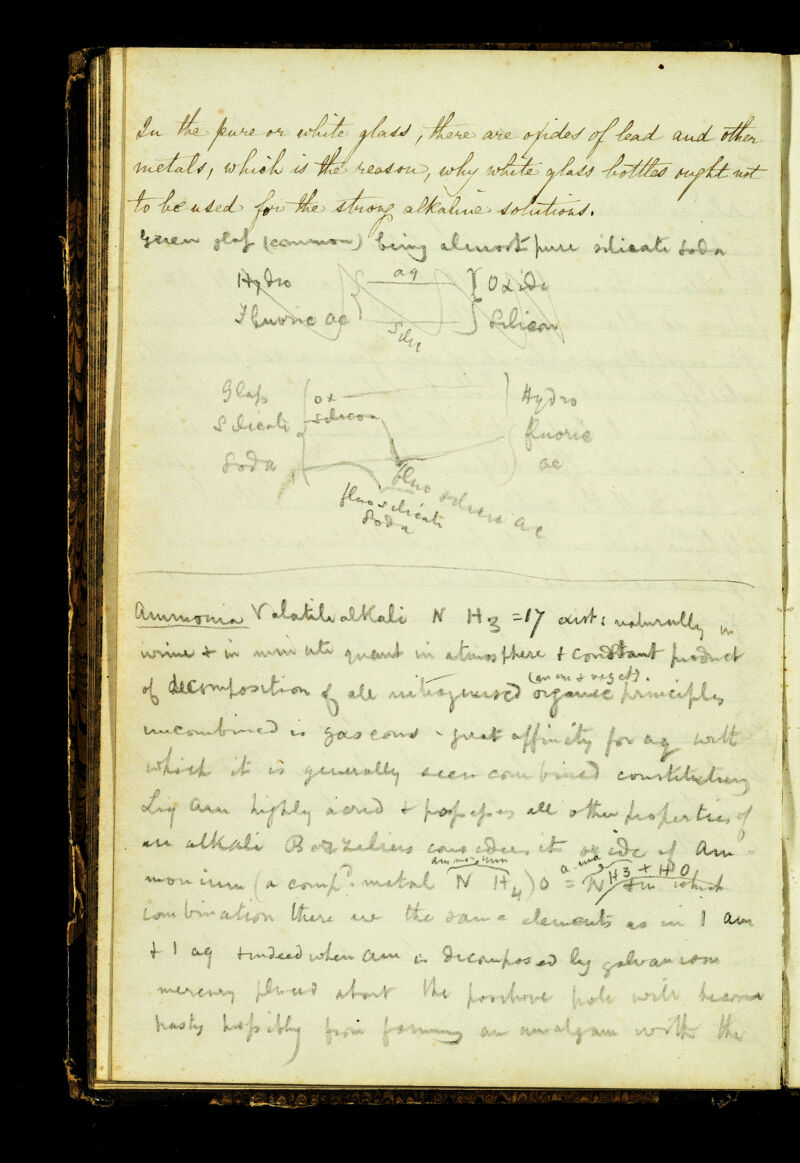 In the pure or white glass, there are oxides of lead and other
metals, which is the reason, why white glass bottles ought not
to be used for the strong alkaline solutions.
Green glass (common) being almost pure silicate soda
Hydro aq Oxide
Fluoric ac Silic Silicon
Glass ox Hydro
Silicate silicon fluoric
Soda ac
fluo silicic ac
fluosilicate
Soda
Ammonia Volatile alkali N H3 = 17 exist: naturally in
urine + in minute quant in atmosphere + constant product
(anim + veget).
of decomposition of all nitrogenised organic principles
uncombined is gaseous - great affinity for aq with
which it is generally seen combined constituting
Liq Am highly acrid + possesses all other properties of
an alkali Berzelius considers it oxide of Am-
ammonium
monium (a comp.d metal N H4) O = N H3 + HO in which
combination there are the same elements as in 1 am
+ 1 aq + indeed when am is decomposed by galvanism
mercury placed about the positive pole will become
pasty possibly from forming an amalgam with the